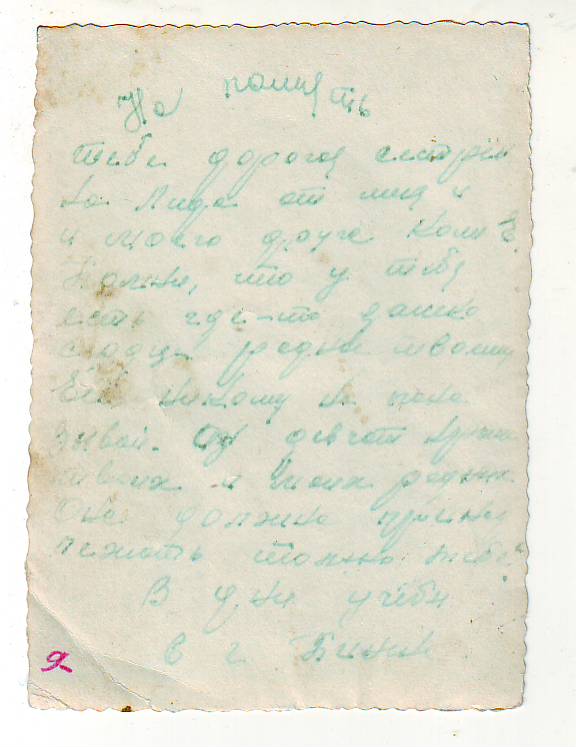 На память
тебе дорогая сестрён
ка Лида от меня и
и моего друга Коли Е.
Помни, что у тебя
есть где-то далеко
сердце родное твоему
Её никому не пока
зывай. девчат кроме
твоих и моих родных
Она должна принад
лежать только тебе.
В дни учёбы
в г.
Я